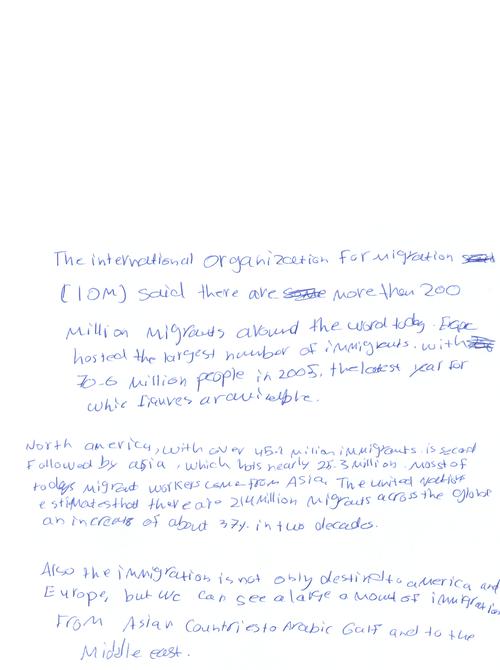 The international organization for migration
(IOM) said there are more than 200
million migrants around the word today. Europe
hosted the largest number of immigrants. with
70-6 million people in 2005, the latest year for
whic figures
North america, with over 45.1 million immigrants. is second
Followed by asia, which hots nearly 25.3 million. Mosst of
todays migrant workers come from Asia. The united nations
estimates that there are 214 million migrants across the globe
an increas of about 37%. in two decades.
Also the immigration is not only destined to america and
Europe, but we can see a large amount of immigration
From Asian Countries to Arabic Gulf and to the
Middle east.